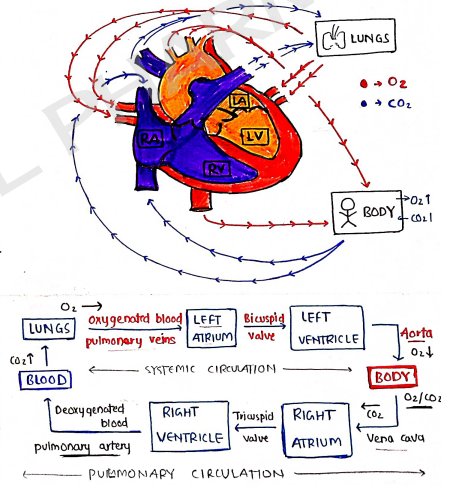 LUNGS
→ O₂
→ CO₂
LA
LV
RA
RV
BODY
→O₂↑
CO₂↓
O₂ →
LUNGS
Oxygenated blood
pulmonary veins
LEFT
ATRIUM
Bicuspid
valve
LEFT
VENTRICLE
Aorta
O₂↓
CO₂↑
BLOOD
SYSTEMIC CIRCULATION
BODY
O₂/CO₂
Deoxygenated
blood
pulmonary artery
RIGHT
VENTRICLE
Tricuspid
valve
RIGHT
ATRIUM
CO₂
Vena cava
PULMONARY CIRCULATION